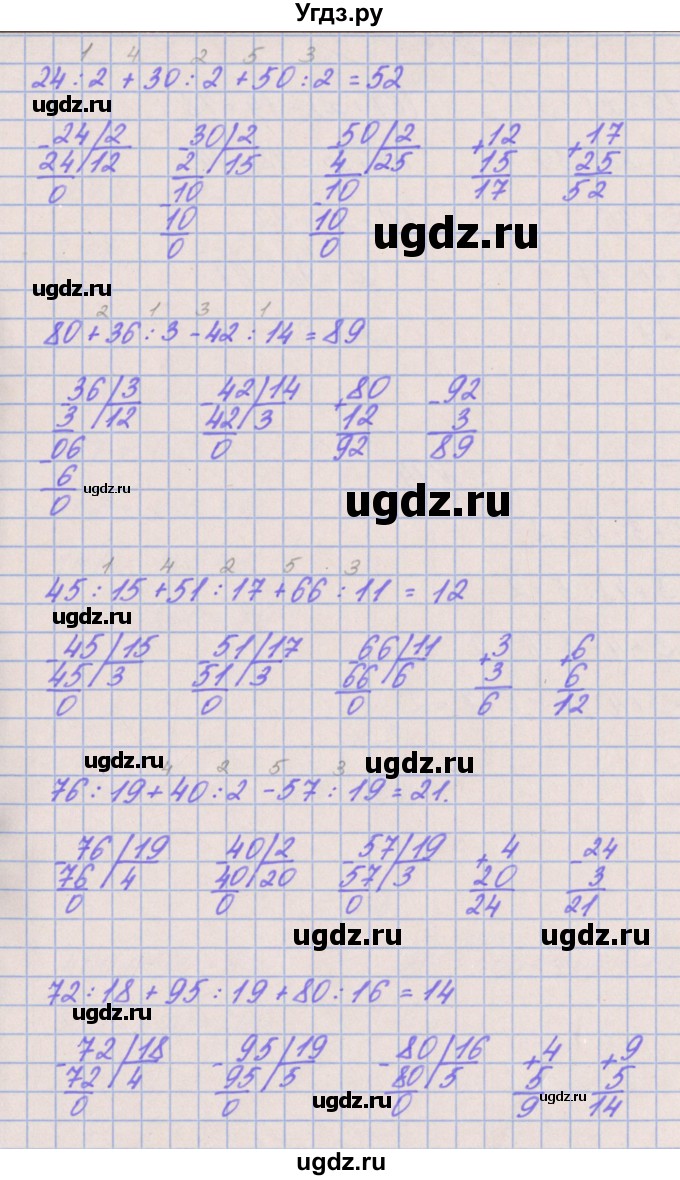 Угдз.ру
1 4 2 5 3
24 : 2 + 30 : 2 + 50 : 2 = 52
ugdz.ru
- 24 / 2 - 30 / 2 - 50 / 2 + 12 + 17
24 / 12 2 / 15 4 / 25 15 25
0 - 10 - 10 17 52
10 10
0 0
ugdz.ru
ugdz.ru
2 1 3 1
80 + 36 : 3 - 42 : 14 = 89
- 36 / 3 - 42 / 14 + 80 - 92
3 / 12 42 / 3 12 3
- 06 0 92 89
6
0
ugdz.ru
ugdz.ru
1 4 2 5 3
45 : 15 + 51 : 17 + 66 : 11 = 12
ugdz.ru
- 45 / 15 - 51 / 17 - 66 / 11 + 3 + 6
45 / 3 51 / 3 66 / 6 3 6
0 0 0 6 12
ugdz.ru
ugdz.ru
4 2 5 3
76 : 19 + 40 : 2 - 57 : 19 = 21.
- 76 / 19 - 40 / 2 - 57 / 19 + 4 - 24
76 / 4 40 / 20 57 / 3 20 3
0 0 0 24 21
ugdz.ru ugdz.ru
72 : 18 + 95 : 19 + 80 : 16 = 14
ugdz.ru
- 72 / 18 - 95 / 19 - 80 / 16 + 4 + 9
72 / 4 95 / 5 80 / 5 5 5
0 0 0 9 14
ugdz.ru
ugdz.ru
ugdz.ru